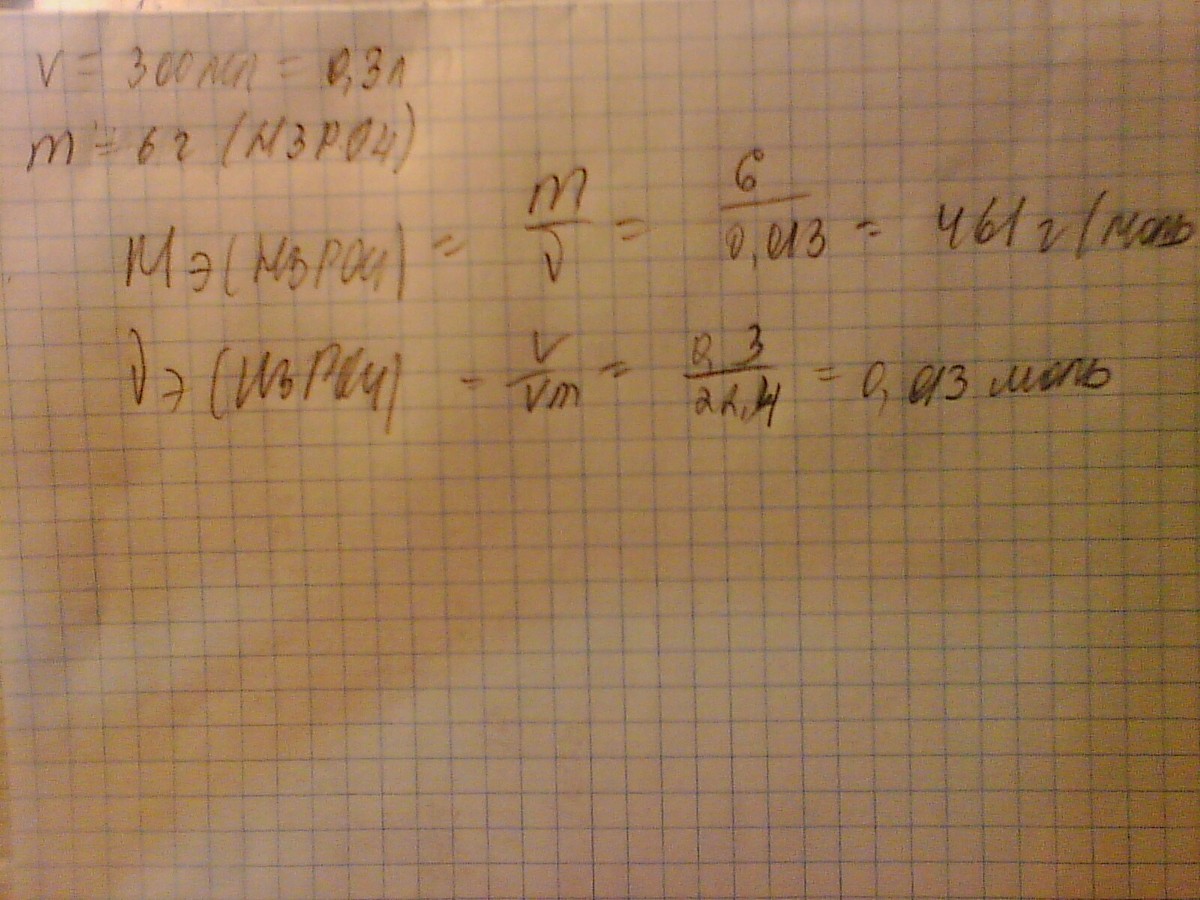 V = 300 мл = 0,3 л
m = 6 г (H3PO4)
Mэ(H3PO4) = m/ν = 6/0,013 = 461 г/моль
νэ(H3PO4) = V/Vm = 0,3/22,4 = 0,013 моль